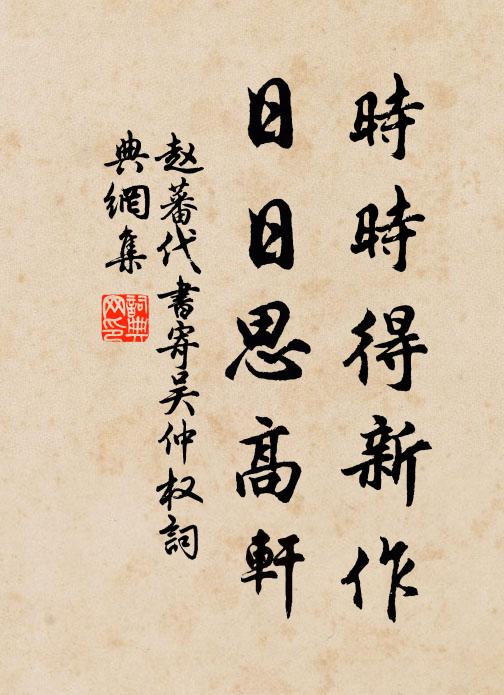 時時得新作
日日思高軒
赵蕃代書寄吴仲权詞
典網集
詞典
网印